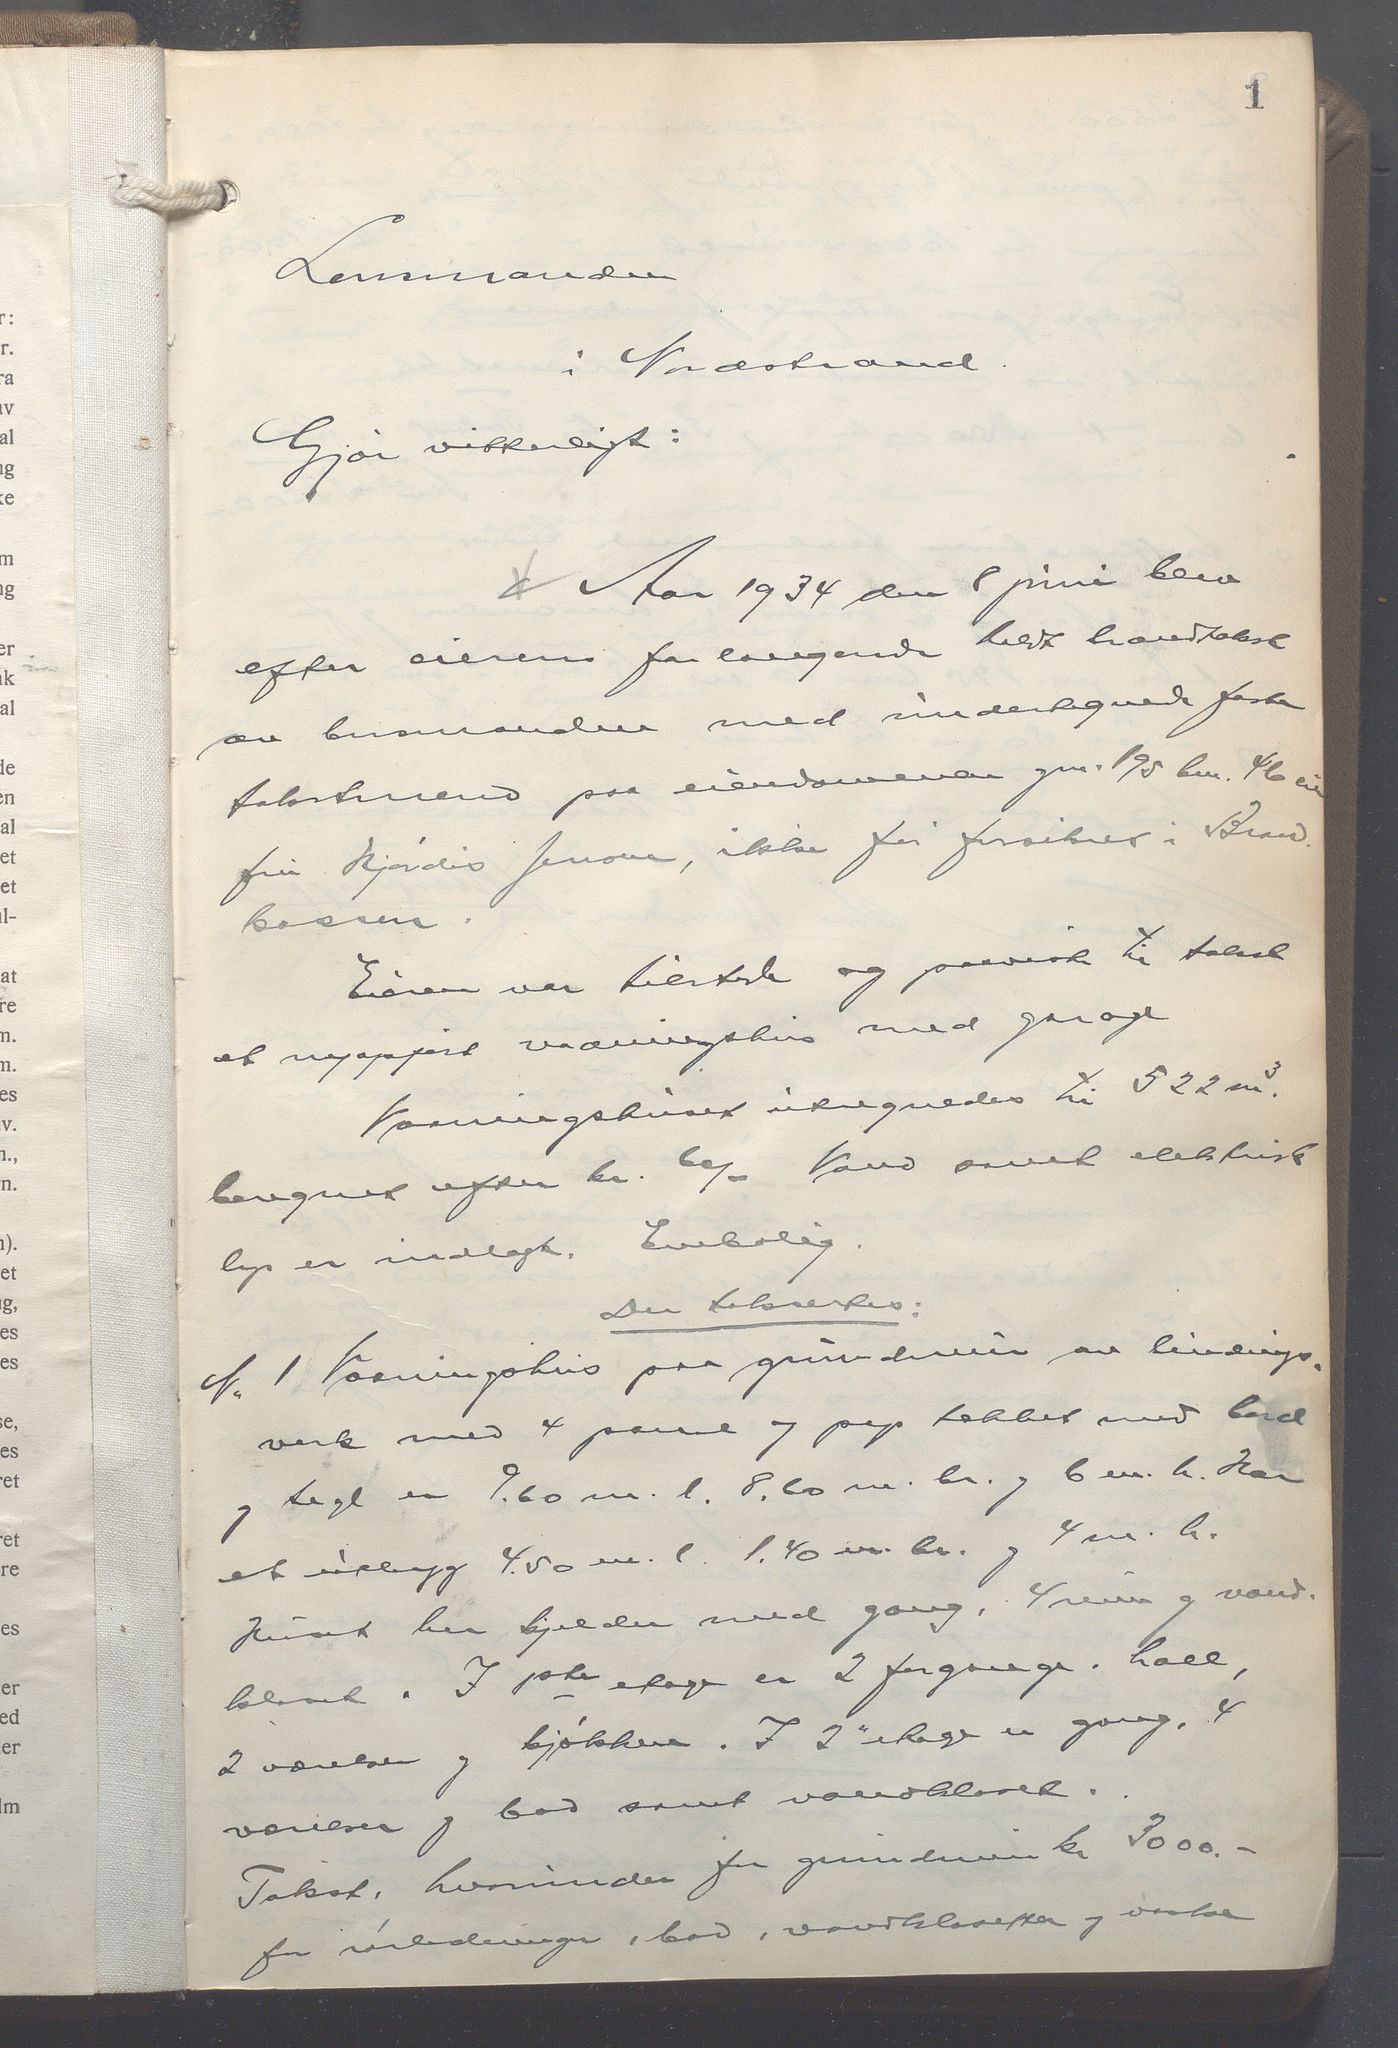 1
Lensmanden
i Nordstrand.
Gjør vitterligt:
Aar 1934 den 8 juni blev
efter eierens forlangende holdt brandtakst
av lensmanden med undertegnede faste
takstmend paa eiendommen gnr. 195 bnr. 46 eier
fru Hjørdis Jensen, ikke før forsikret i Brand-
kassen.
Eieren var tilstede og paaviste til takst
et nyopført vaaningshus med garage
Vaaningshuset utregnedes til 522 m³.
beregnet efter kr. 60/- Vand samt elektrisk
lys er indlagt. Enebolig.
Der taksertes:
No 1 Vaaningshus paa grundmur av bindings-
verk med 4 panel og pap tekket med bord
og tegl er 9.60 m. l. 8.60 m. br. og 6 m. h. Har
et utbygg 4.50 m. l. 1.40 m. br. og 4 m. h.
Huset har kjelder med gang, 4 rum og vand-
kloset. I 1ste etage er 2 forgange. hall,
2 værelser og kjøkken. I 2" etage er gang, 4
værelser og bad samt vandkloset.
Takst, hvorunder for grundmur kr 3000.-
for rørledninger, bad, vandklosetter og vaske